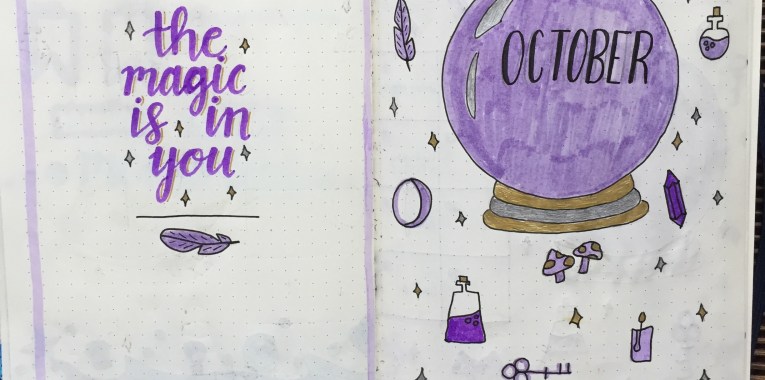 the
magic
is in
you
OCTOBER